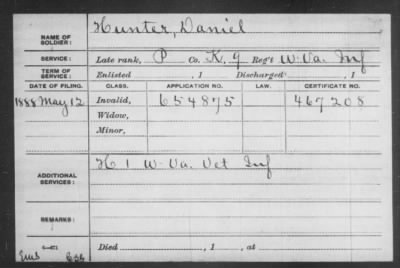 NAME OF SOLDIER: Hunter, Daniel
SERVICE: Late rank, P Co. K, 9 Reg't W. Va. Inf
TERM OF SERVICE: Enlisted , 1 Discharged , 1
DATE OF FILING. CLASS. APPLICATION NO. LAW. CERTIFICATE NO.
1888 May 12 Invalid, 654875 467208
Widow,
Minor,
ADDITIONAL SERVICES: H 1 W. Va. Vet Inf
REMARKS:
Died , 1 , at